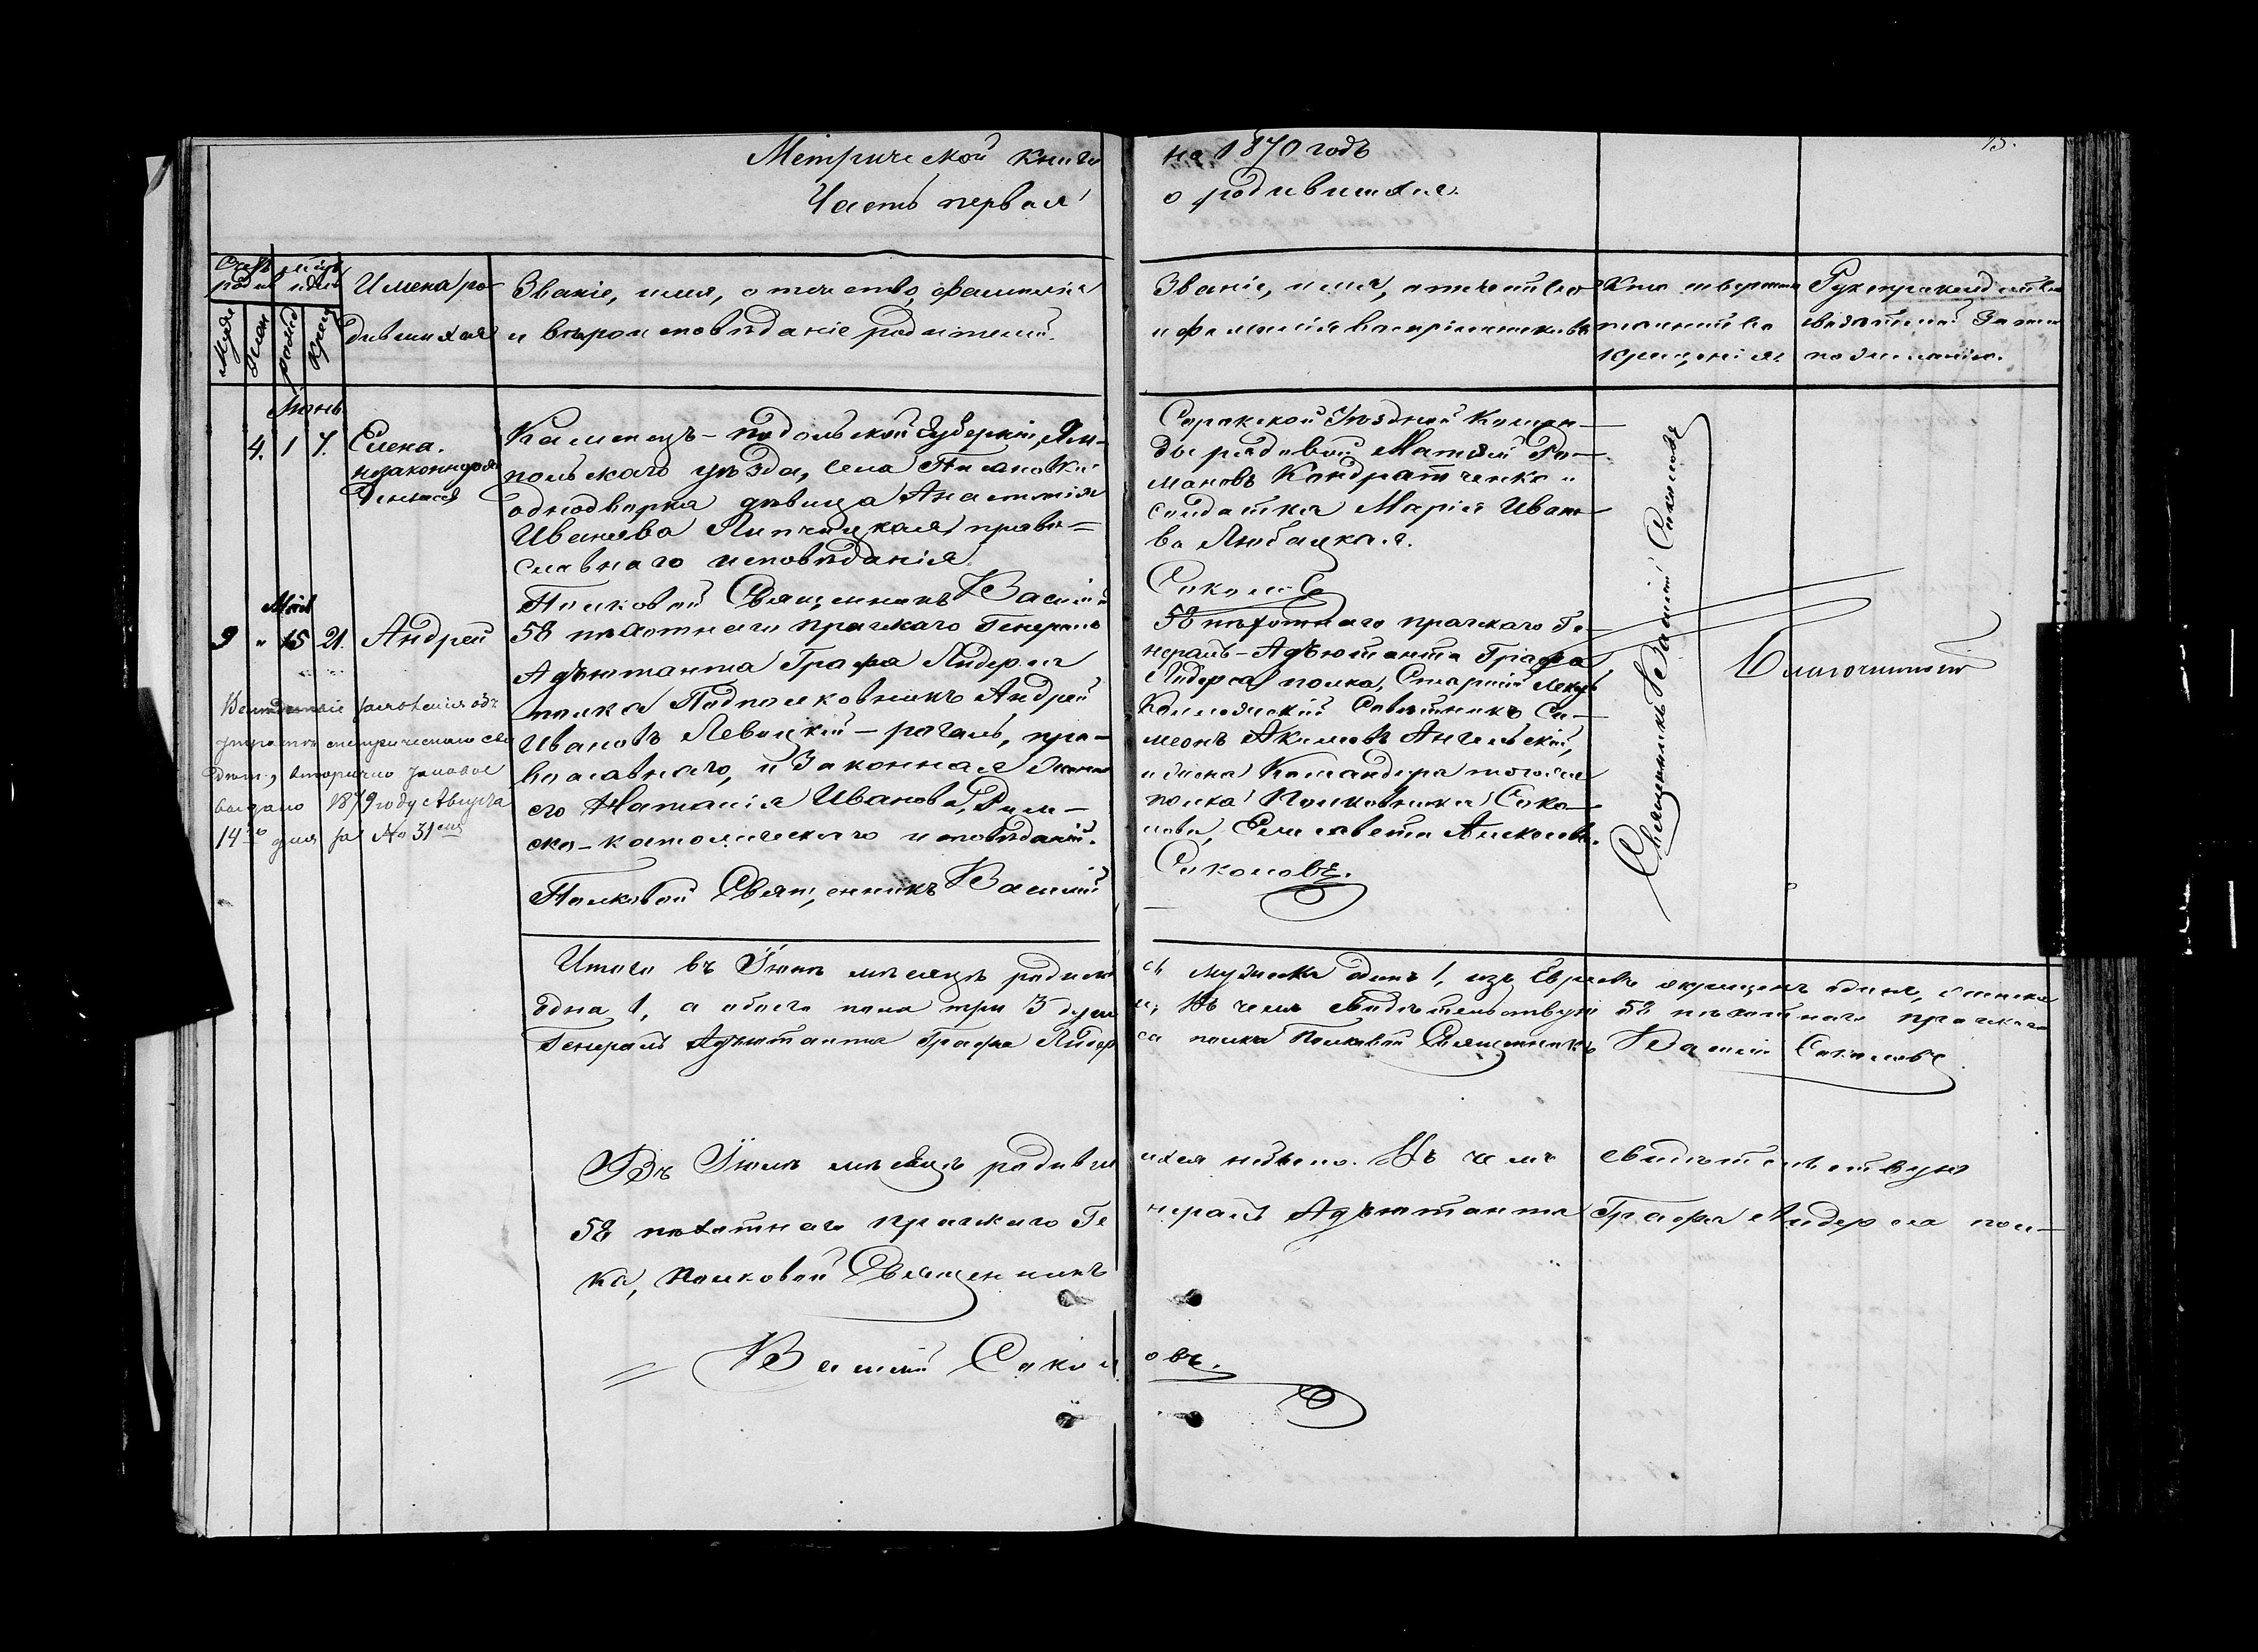 Метрической книги на 1870 годъ
Часть первая о родившихся.
15.
Имена ро-
дившихся
Званіе, имя, отчество, фамилія
и вѣроисповѣданіе родителей.
Званіе, имя, отчество
и фамилія воспріемниковъ
Кто совершалъ
таинство
крещенія.
Рукоприкладство
свидѣтелей записи
по желанію.
Муж.
Жен.
рожд.
Крещ.
Іюнь
4. 1 7. Елена.
незаконнорож
денная
Каменецъ-Подольской Губерніи, Ям-
польскаго уѣзда, села Писаковки
однодворка дѣвица Анастасія
Иванова Липчицкая, право=
славнаго исповѣданія
Полковой Священникъ Василій
Сорокской Уѣздной Коман-
ды рядовой Матвѣй Ро-
мановъ Кондратченко и
солдатка Марія Ивано-
ва Любацкая.
Соколовъ
Май
9 " 15 21. Андрей
58 пѣхотнаго Прагскаго Генералъ
Адъютанта Графа Лидерса
полка Подполковникъ Андрей
Ивановъ Левицкій-рогаль, пра-
вославнаго, и Законная жена
его Наталія Иванова, Рим-
ско-католическаго исповѣданій.
Полковой Священникъ Василій
58 пѣхотнаго Прагскаго Ге-
нералъ-Адъютанта Графа
Лидерса полка, Старшій Лекарь
Коллежскій Совѣтникъ Си-
меонъ Акимовъ Ангельскій,
и жена Командира тогоже
полка Полковника Соко-
лова, Елисавета Алексѣева.
Соколовъ.
Священникъ Василій Соколовъ
Благочинный
утратою метрическаго сви
вторично таковое
выдано 1879 году Августа
14го дня за No 31емъ
Итого въ Іюнѣ мѣсяцѣ родилось мужеска одинъ 1, изъ Евреевъ окрещенъ одинъ, женска
одна 1, а обоего пола три 3 души, Въ чемъ свидѣтельствую 58 пѣхотнаго Прагскаго
Генералъ Адъютанта Графа Лидерса полка Полковой Священникъ Василій Соколовъ
Въ Іюлѣ мѣсяцѣ родившихся небыло. Въ чемъ свидѣтельствую
58 пѣхотнаго Прагскаго Генералъ Адъютанта Графа Лидерса пол-
ка, Полковой Священникъ
Василій Соколовъ.